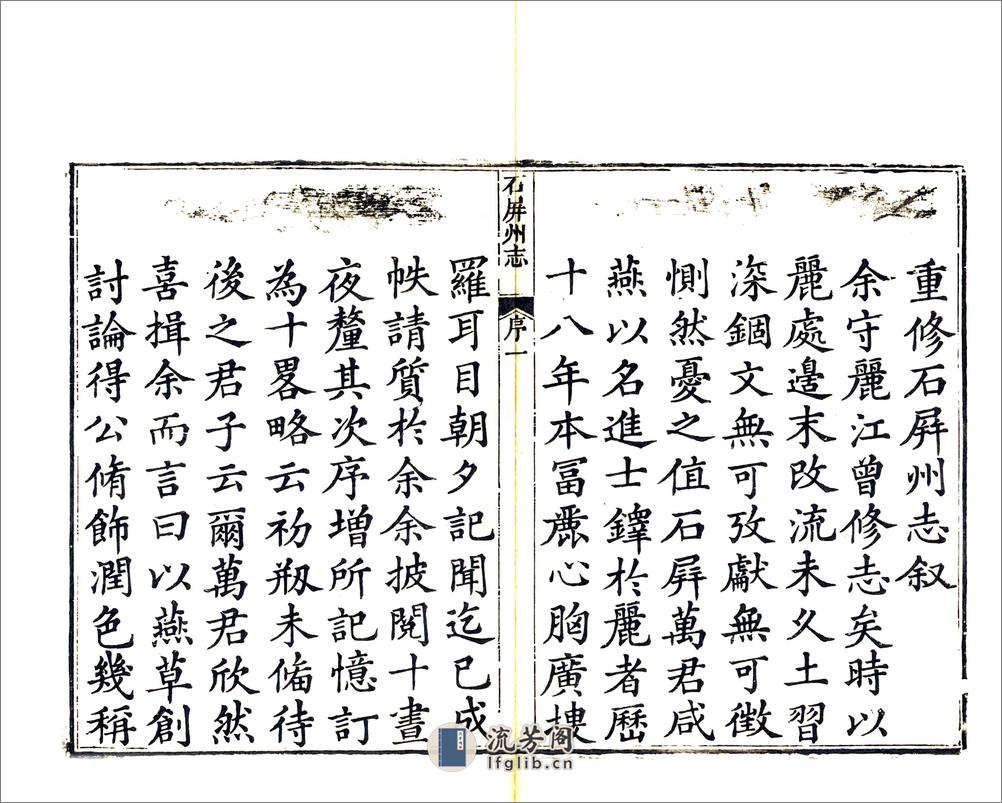 重修石屏州志叙
余守麗江曾修志矣時以
麗處邊末改流未久土習
深錮文無可攷獻無可徵
惻然憂之值石屏萬君咸
燕以名進士鐸於麗者歷
十八年本冨麗心胸廣摟
石屏州志
序一
羅耳目朝夕記聞迄已成
帙請質於余余披閱十晝
夜釐其次序增所記憶訂
為十畧略云初剏未俻待
後之君子云爾萬君欣然
喜揖余而言曰以燕草創
討論得公脩飾潤色幾稱
流芳阁
lfglib.cn